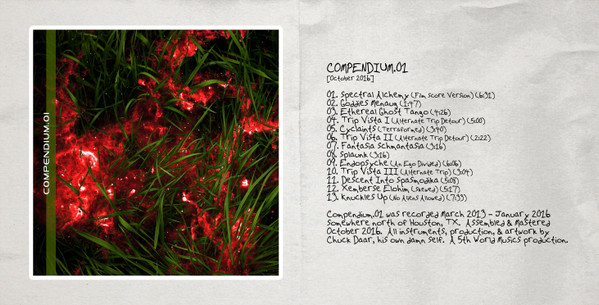 COMPENDIUM.01
COMPENDIUM.01
[October 2016]
01. Spectral Alchemy (Film Score Version) (6:31)
02. Goddies Menaug (1:47)
03. Ethereal Ghost Tango (4:26)
04. Trip Vista I (Alternate Trip Detour) (5:00)
05. Cyclaints (Terraformed) (3:40)
06. Trip Vista II (Alternate Trip Detour) (2:22)
07. Fantasia Schmantasia (3:16)
08. Splaunk (3:16)
09. Endopsyche (An Ego Divided) (6:06)
10. Trip Vista III (Alternate Trip) (3:04)
11. Descent Into Spasmodika (5:08)
12. Xenberse Elohim (5:17)
13. Knuckles Up (No Aliens Allowed) (7:33)
Compendium.01 was recorded March 2013 - January 2016
Somewhere north of Houston, TX. Assembled & Mastered
October 2016. All instruments, production, & artwork by
Chuck Daar, his own damn self. A 5th World Musics production.